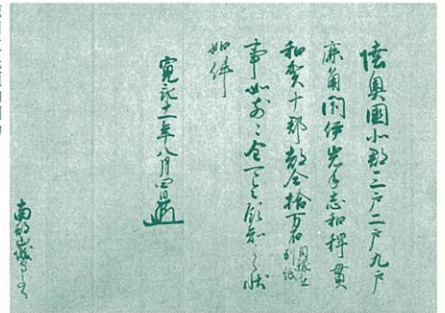 陸奥國北郡三戸二戸九戸
鹿角閇伊岩手志和稗貫
和賀十郡都合拾万石 目録在別紙
事如前々全可令領知之状
如件
寛永十一年八月四日
南部山城守とのへ